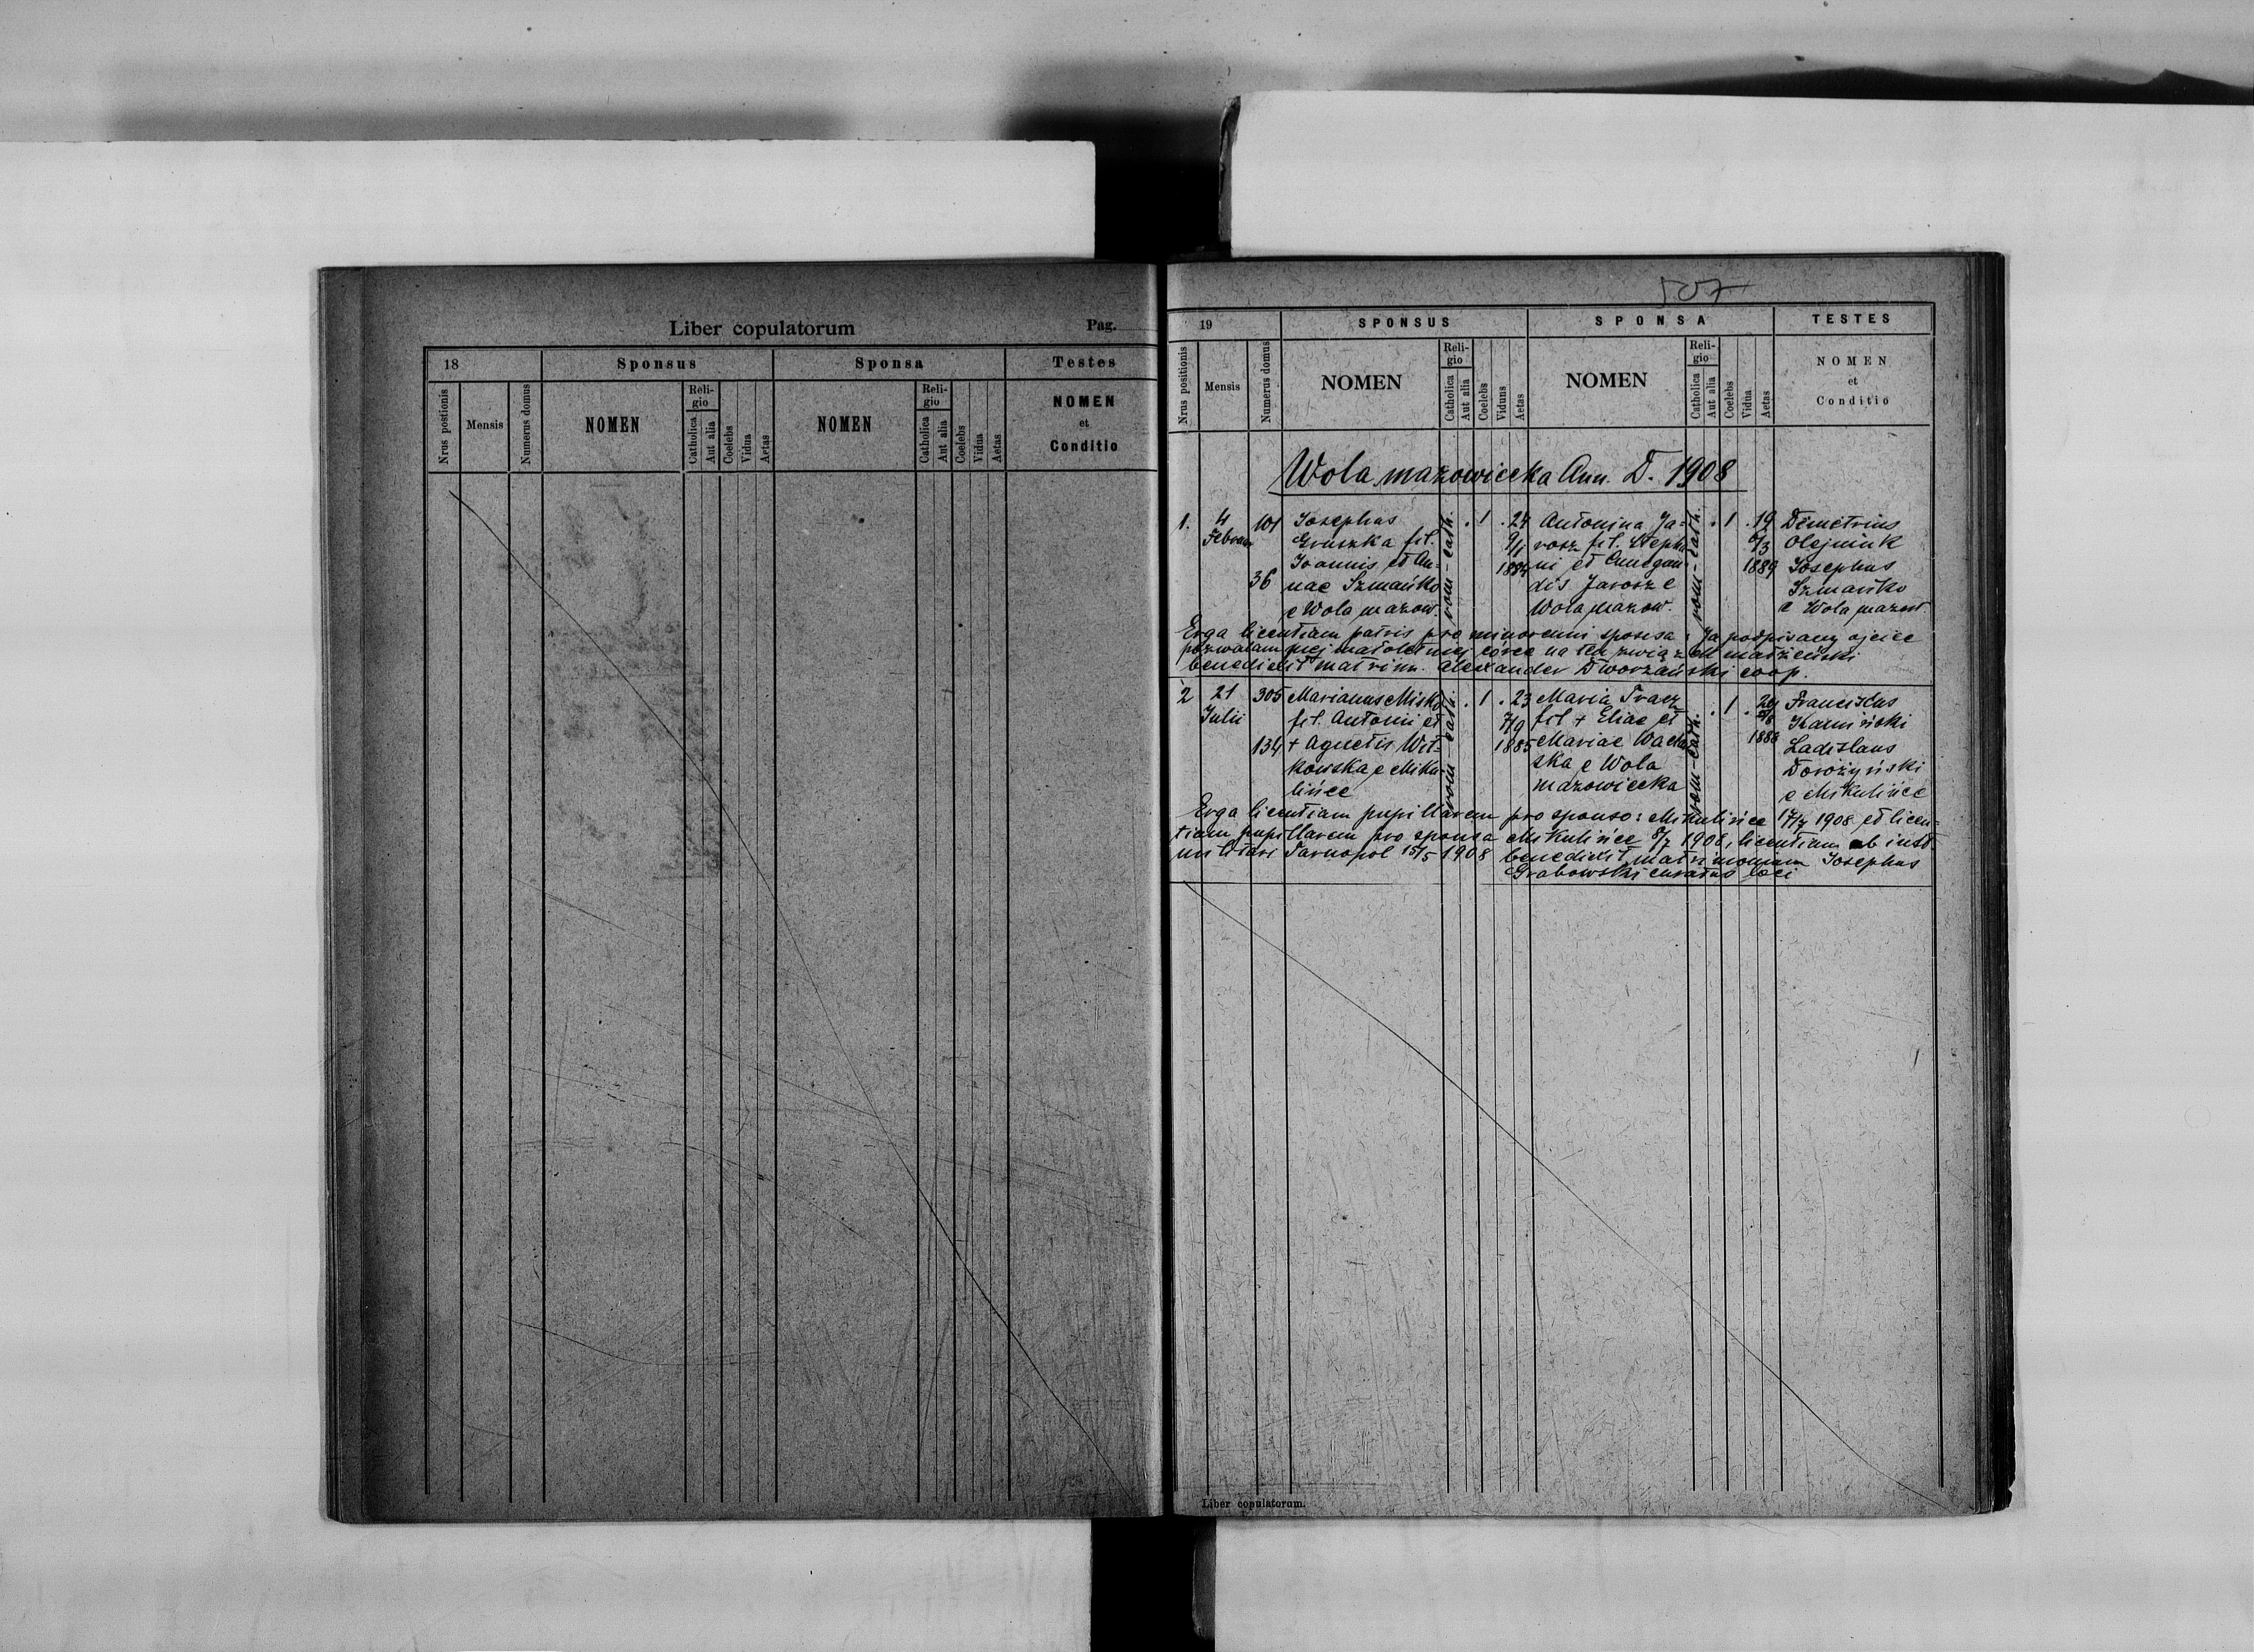 Liber copulatorum
Pag.
18
Sponsus
Sponsa
Testes
Nrus postionis
Mensis
Numerus domus
NOMEN
Religio
Catholica
Aut alia
Coelebs
Vidua
Aetas
NOMEN
Religio
Catholica
Aut alia
Coelebs
Vidua
Aetas
NOMEN
et
Conditio
507
19
SPONSUS
SPONSA
TESTES
Nrus positionis
Mensis
Numerus domus
NOMEN
Reli-
gio
Catholica
Aut alia
Coelebs
Viduus
Aetas
NOMEN
Reli-
gio
Catholica
Aut alia
Coelebs
Vidua
Aetas
NOMEN
et
Conditio
Wola mazowiecka Ann. D. 1908
1. 4 101 Josephus . 1 . 24 Antonina Ja- . 1 . 19 Demetrius
Gruszka fil. 9/1 rosz fil. Stepha 6/3 Olejnik
Joannis et An- 1884 ni et 1889 Josephus
36 nae Szmańko dis Jarosz e Szmańko
e Wola mazow. Wola mazow. e Wola mazow
rom-cath. rom-cath.
Erga licentiam patris pro minorenni sponsa: Ja podpisany ojciec
pozwalam mej małoletniej córce na ten związek małżeński
benedixit matrim. Alexander Dworzański coop.
2 21 305 Marianus Misko . 1 . 23 Maria Tracz . 1 . 20 Franciscus
Julii fil. Antoni et 7/9 fil + Eliae et Kamiński
134 + Agnetis Wit- 1885 Mariae 1888 Ladislaus
kowska e Miku- ska e Wola Dorożyński
lińce mazowiecka e Mikulińce
rom-cath. rom-cath.
Erga licentiam pupillarem pro sponso: Mikulińce 17/7 1908 et licen-
tiam pupillarem pro sponsa Mikulińce 8/7 1908, licentiam ab inst.
militari Tarnopol 15/5 1908 benedixit matrimonium Josephus
Grabowski curatus loci
Liber copulatorum.